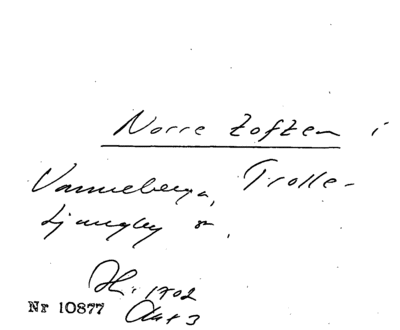 Norre toften i
Vanneberga, Trolle-
Ljungby sn.
H: 1702
Akt 3
Nr 10877